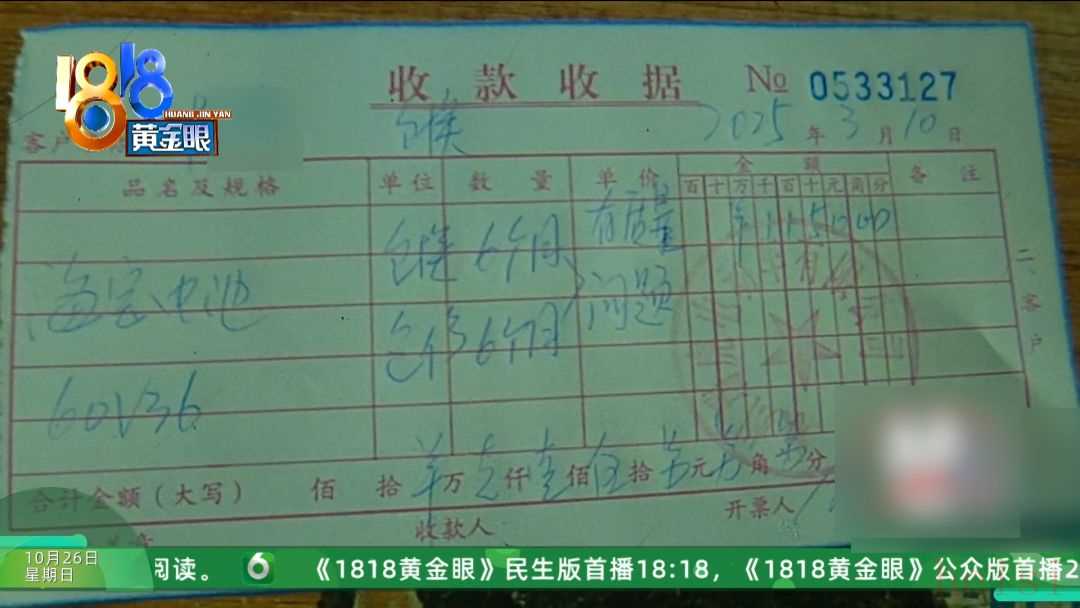 1818
HUANG JIN YAN
黄金眼
收款收据 № 0533127
2025年3月10日
客户
品名及规格 单位 数量 单价 金额 备注
百十万千百十元角分
包换 6个月 有质量
问题
电池
6个月
60V36
二、客户
合计金额（大写） 佰 拾 万 仟 壹佰 伍拾 元 角 分
收款人 开票人
10月26日
星期日
阅读。 6 《1818黄金眼》民生版首播18:18，《1818黄金眼》公众版首播2